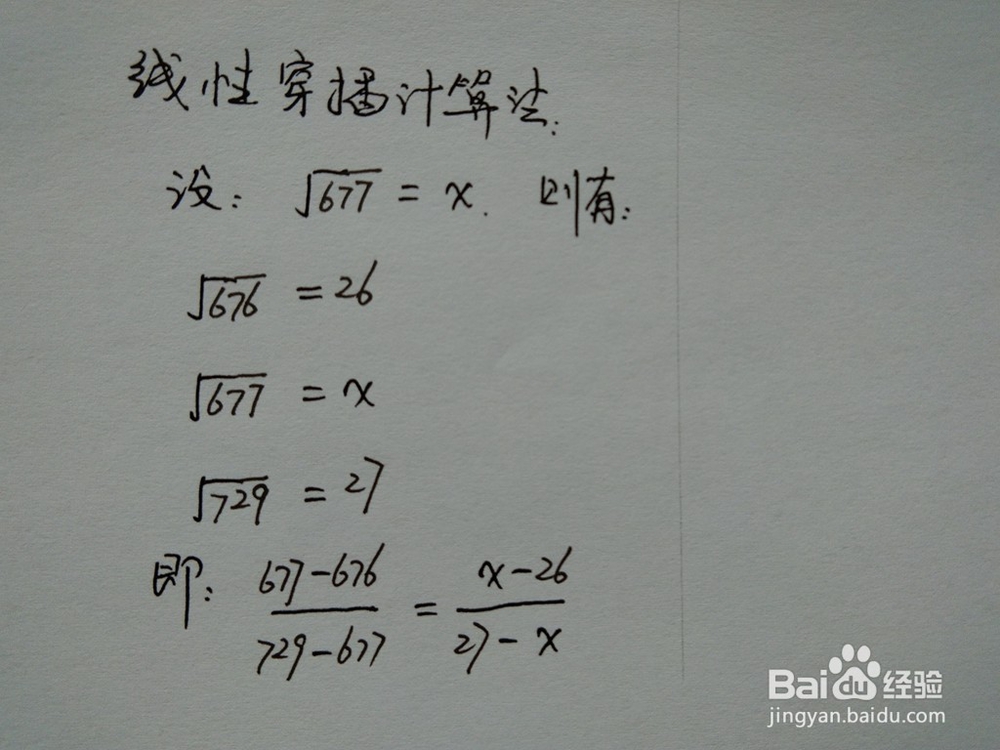 线性穿插计算法:
设: √677 = x. 则有:
√676 = 26
√677 = x
√729 = 27
即: (677-676)/(729-677) = (x-26)/(27-x)
Baidu 经验
jingyan.baidu.com